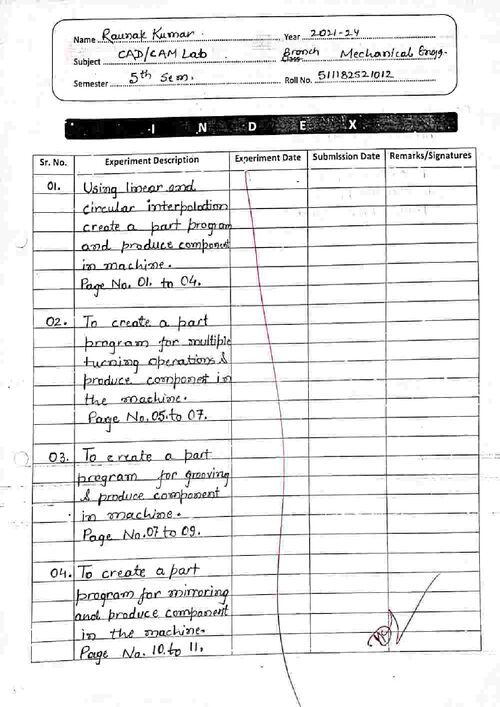 Name Raunak Kumar Year 2021-24
Subject CAD/CAM Lab Branch Class Mechanical Engg.
Semester 5th Sem. Roll No. 511182521012
INDEX
Sr. No. Experiment Description Experiment Date Submission Date Remarks/Signatures
01. Using linear and
circular interpolation
create a part program
and produce component
in machine.
Page No. 01. to 04.
02. To create a part
program for multiple
turning operations &
produce componet in
the machine.
Page No. 05. to 07.
03. To create a part
program for grooving
& produce component
in machine.
Page No. 07 to 09.
04. To create a part
program for mirroring
and produce component
in the machine.
Page No. 10. to 11.